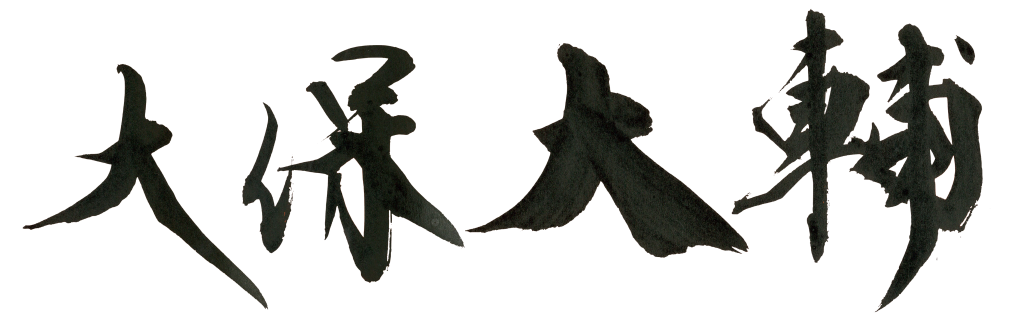 大保大輔